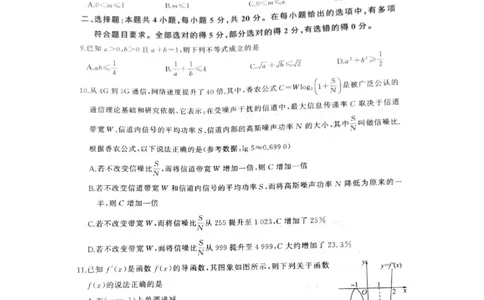 A.0<m≤1 B.m≤1 C.0<m≤e
二、选择题:本题共4小题,每小题5分,共20分。在每小题给出的选项中,有多项
符合题目要求。全部选对的得5分,部分选对的得2分,有选错的得0分。
9.已知a>0,b>0且a+b=1,则下列不等式成立的是
A.ab≤1/4 B.1/a+1/b≤4 C.√a+√b≤√2 D.a²+b²≥1/2
10.从4G到5G通信,网络速度提升了40倍.其中,香农公式C=Wlog₂(1+S/N)是被广泛公认的
通信理论基础和研究依据,它表示:在受噪声干扰的信道中,最大信息递率C取决于信道
带宽W、信道内信号的平均功率S、信道内部的高斯噪声功率N的大小,其中S/N叫做信噪比.
根据香农公式,以下说法正确的是(参考数据:lg 5≈0.699 0)
A.若不改变信噪比S/N,而将信道带宽W增加一倍,则C增加一倍
B.若不改变信道带宽W和信道内信号的平均功率S,而将高斯噪声功率N降低为原来的一
半,则C增加一倍
C.若不改变带宽W,而将信噪比S/N从255提升至1 023,C增加了25%
D.若不改变带宽W,而将信噪比S/N从999提升至4 999,C大约增加了23.3%
11.已知f′(x)是函数f(x)的导函数,其图象如图所示,则下列关于函数
f(x)的说法正确的是
y y=f′(x)
-1 O 1 2 x
上单调递减